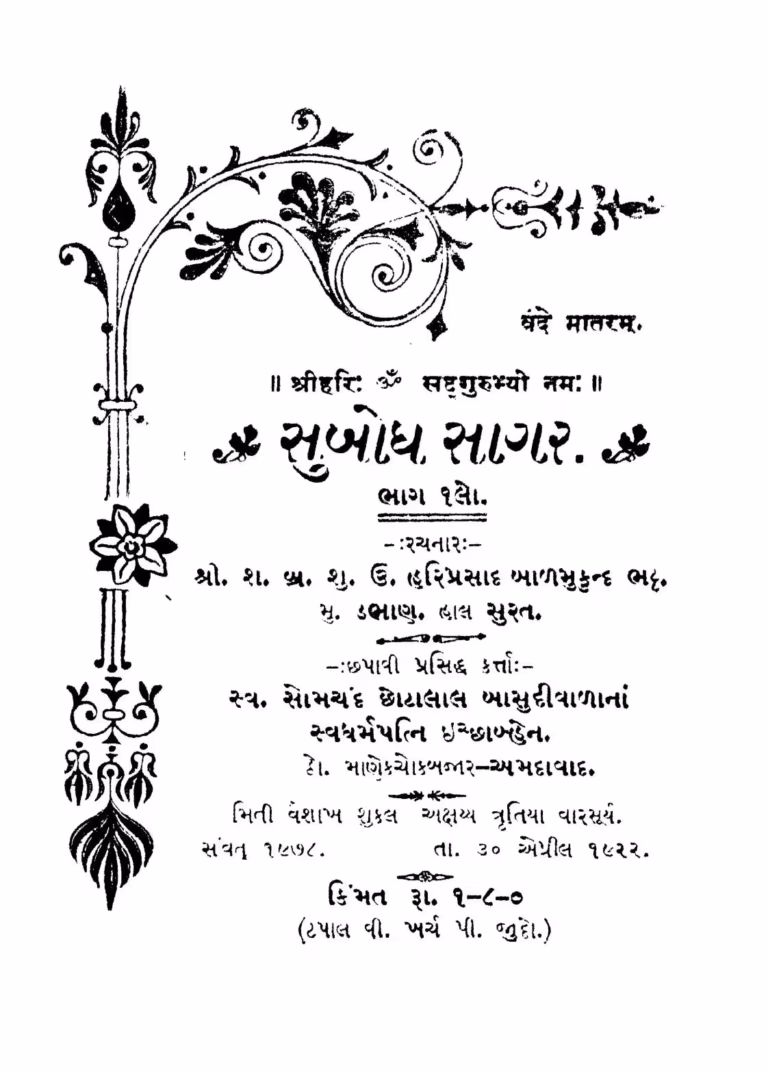 वंदे मातरम्.
॥ श्रीहरिः ॐ सद्गुरुभ्यो नमः ॥
સુબોધ સાગર.
ભાગ ૧લો.
-:રચનારઃ-
શ્રી. શ. બ્ર. શુ. ઉ. હરિપ્રસાદ બાળમુકુન્દ ભટ્ટ.
મુ. ડભાણ. હાલ સુરત.
-:છપાવી પ્રસિદ્ધ કર્ત્તાઃ-
સ્વ. સોમચંદ છોટાલાલ બાસુદીવાળાનાં
સ્વધર્મપત્નિ ઇચ્છાબ્હેન.
ઠે. માણેકચોકબજાર–અમદાવાદ.
મિતી વૈશાખ શુકલ અક્ષય્ય ત્રૃતિયા વારસૂર્ય.
સંવત્ ૧૯૭૮. તા. ૩૦ એપ્રીલ ૧૯૨૨.
કિંમત રૂા. ૧–૮–૦
(ટપાલ વી. ખર્ચ પી. જુદો.)